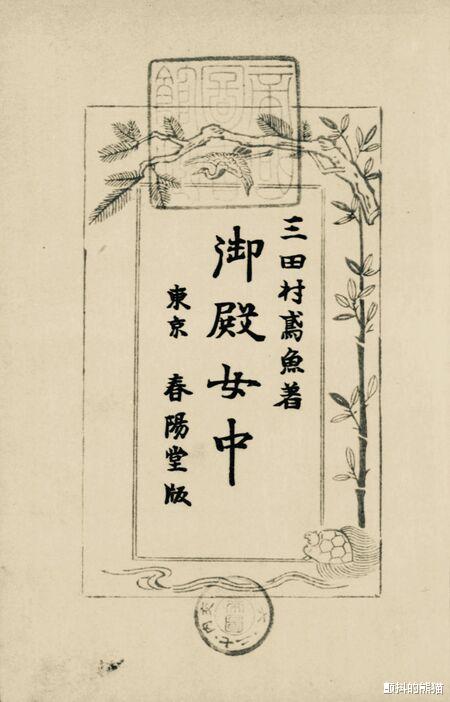 三田村鳶魚著
御殿女中
東京 春陽堂版
颤抖的熊猫